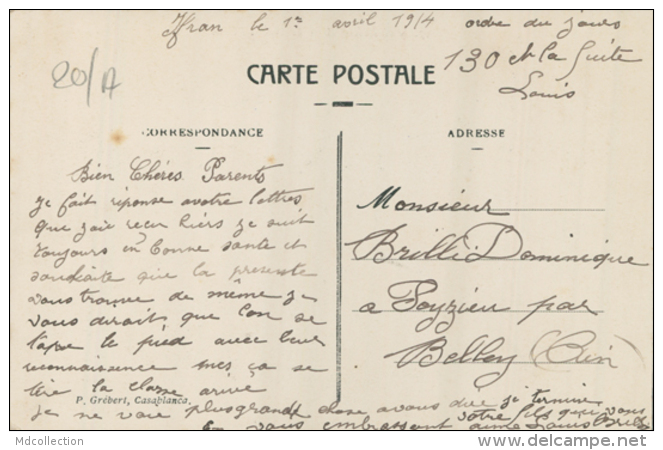 Ifran le 1er avril 1914 ordre du jours
130 et la Suite
Louis
20/A
CARTE POSTALE
CORRESPONDANCE
ADRESSE
Bien Chéres Parents
je fait réponse avotre lettres
que jaie recu hiers je suit
toujours en bonne sante et
souhaite que la presente
vous trouve de même je
vous dirait que l'on se
tape le pied avec leur
reconnaissence mes ça se
tire la classe arive
je ne vaie plus grande chose avous dire je termine
en vous embrassent votre fils qui vous
aime Louis Brilli
Monsieur
Brilli Dominique
a Poyzieu par
Belley (Ain)
P. Grébert, Casablanca.
Mdcollection
www.delcampe.net